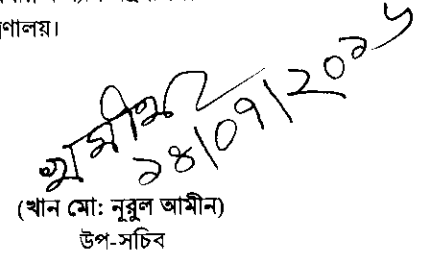 ণালয়।
১৪/০৭/২০১৬
(খান মো: নূরুল আমীন)
উপ-সচিব